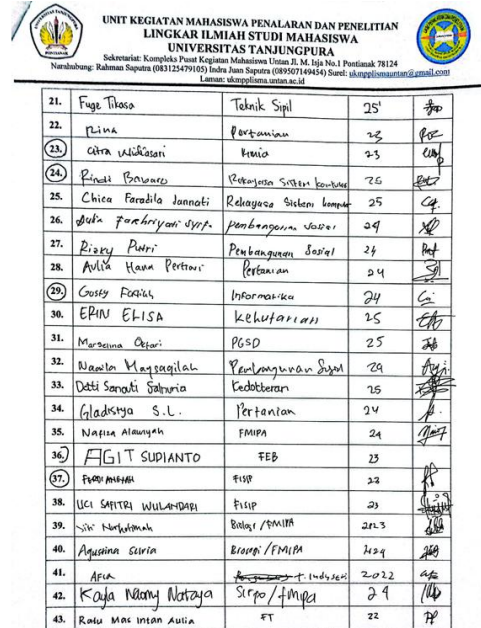 UNIT KEGIATAN MAHASISWA PENALARAN DAN PENELITIAN
LINGKAR ILMIAH STUDI MAHASISWA
UNIVERSITAS TANJUNGPURA
Sekretariat: Kompleks Pusat Kegiatan Mahasiswa Untan Jl. M. Isja No.1 Pontianak 78124
Narahubung: Rahman Saputra (083125479105) Indra Juan Saputra (089507149454) Surel: ukmpplismauntan@gmail.com
Laman: ukmpplisma.untan.ac.id
21. Fuge Tikasa Teknik Sipil 25'
22. Rina Pertanian 23
23. Citra Widiasari Kimia 23
24. Rindi Rekayasa Sistem 25
25. Chica Faradila Jannati Rekayasa Sistem Komputer 25
26. Aulia Fakhriyati pembangunan sosial 24
27. Rizky Putri Pembangunan Sosial 24
28. Aulia Hana Pertiwi Pertanian 24
29. Gusty Informatika 24
30. ERIN ELISA Kehutanan 25
31. Marselina Oktari PGSD 25
32. Nasila Pembangunan Sosial 24
33. Detti Kedokteran 25
34. Gladistya S.L. Pertanian 24
35. Nafisa Alawiyah FMIPA 24
36. AGIT SUPIANTO FEB 23
37. FISIP 23
38. UCI SAFITRI WULANDARI FISIP 23
39. Siti Biologi / FMIPA 2023
40. Agustina Silvia Biologi / FMIPA 2024
41. AFCA T. Industri 2022
42. Kayla Naomy Nataya / fmipa 24
43. Ratu Mas Intan Aulia FT 22